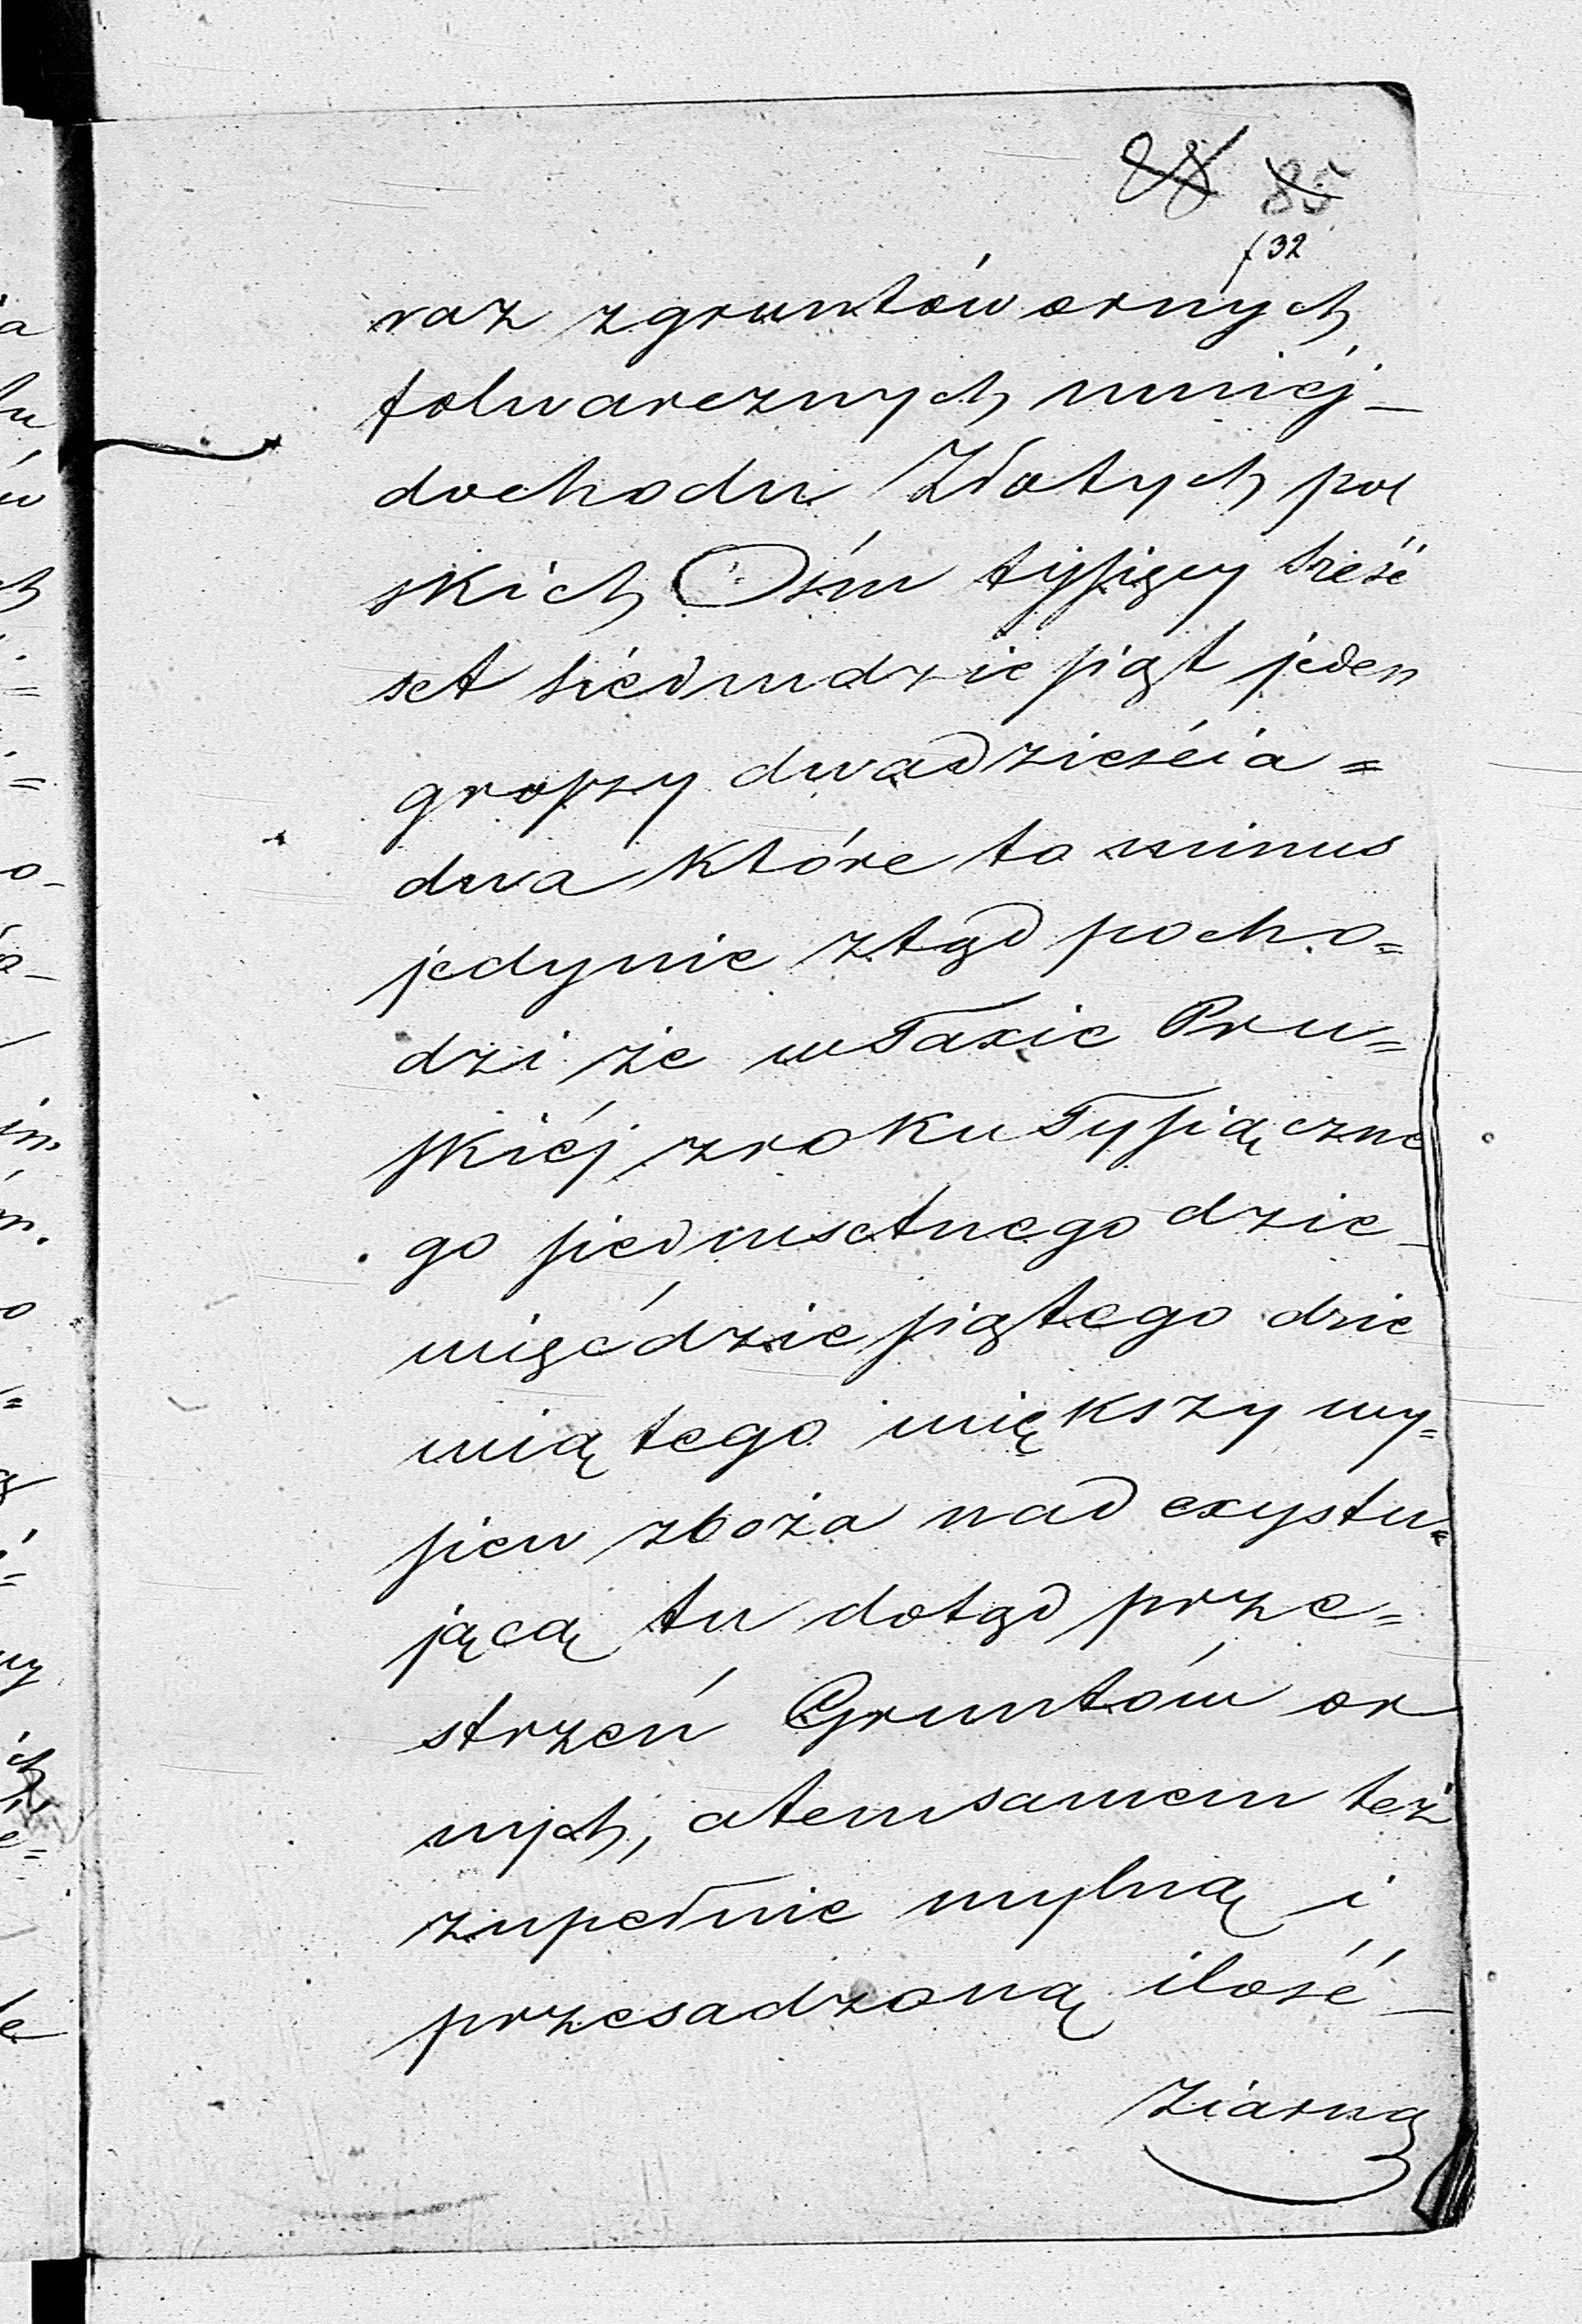 88 85
f 32
raz z gruntów ornych
folwarcznych mniej_
dochodu Złotych pol
skich Ośm tysięcy sześć
set siedmdziesiąt jeden
groszy dwadzieścia =
dwa które to minus
jedynie ztąd pocho=
dzi że w Taxie Pru=
skiéj z roku Tysiączne
go siedmsetnego dzie_
więćdziesiątego dzie
wiątego większy wy=
siew zboża nad exystu=
jącą tu dotąd prze=
strzeń Gruntów or
nych, a tem samem też
zupełnie mylną i
przesadzoną ilość_
Ziarna